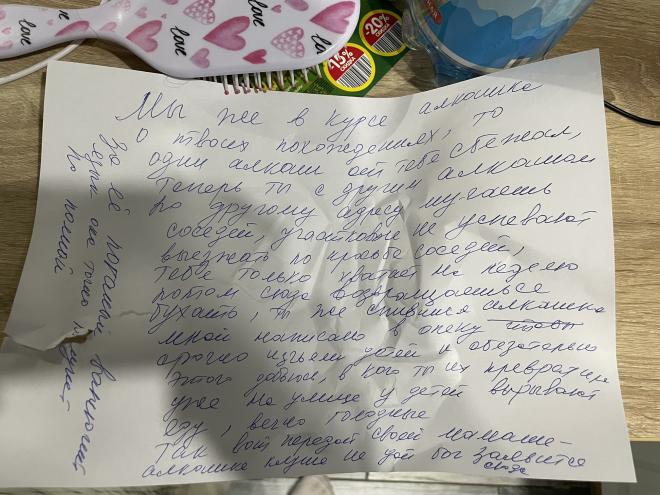 love
love
love
la
-15%
скидка
-20%
скидка
Мы же в курсе алкашка
о твоих похождениях, то
один алкаш от тебя сбежал,
теперь ты с другим алкашом
по другому адресу
соседей, участковые не успевают
выезжать по просьбе соседей,
тебя только хватает на неделю
потом сюда возвращаешься
бухать, ты же спившияся алкашка
мной написано в опеку чтобы
срочно изъяли детей и обязательно
этого добьюсь, в кого ты их превратила
уже на улице у детей вырывают
еду, вечно голодные
Так вот передай своей мамаше-
алкашке не дай бог заявится
сюда
За её поганый вонючий
язык она только получат
по полной